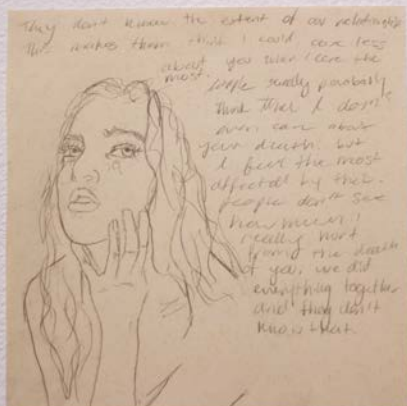 They don't know the extent of our relationship
This makes them think I could care less
about you when I care the
most.
people really probably
think that I don't
even care about
your death. but
I feel the most
affected by this.
people don't see
how much I
really hurt
from the death
of you. we did
everything together
and they don't
know that